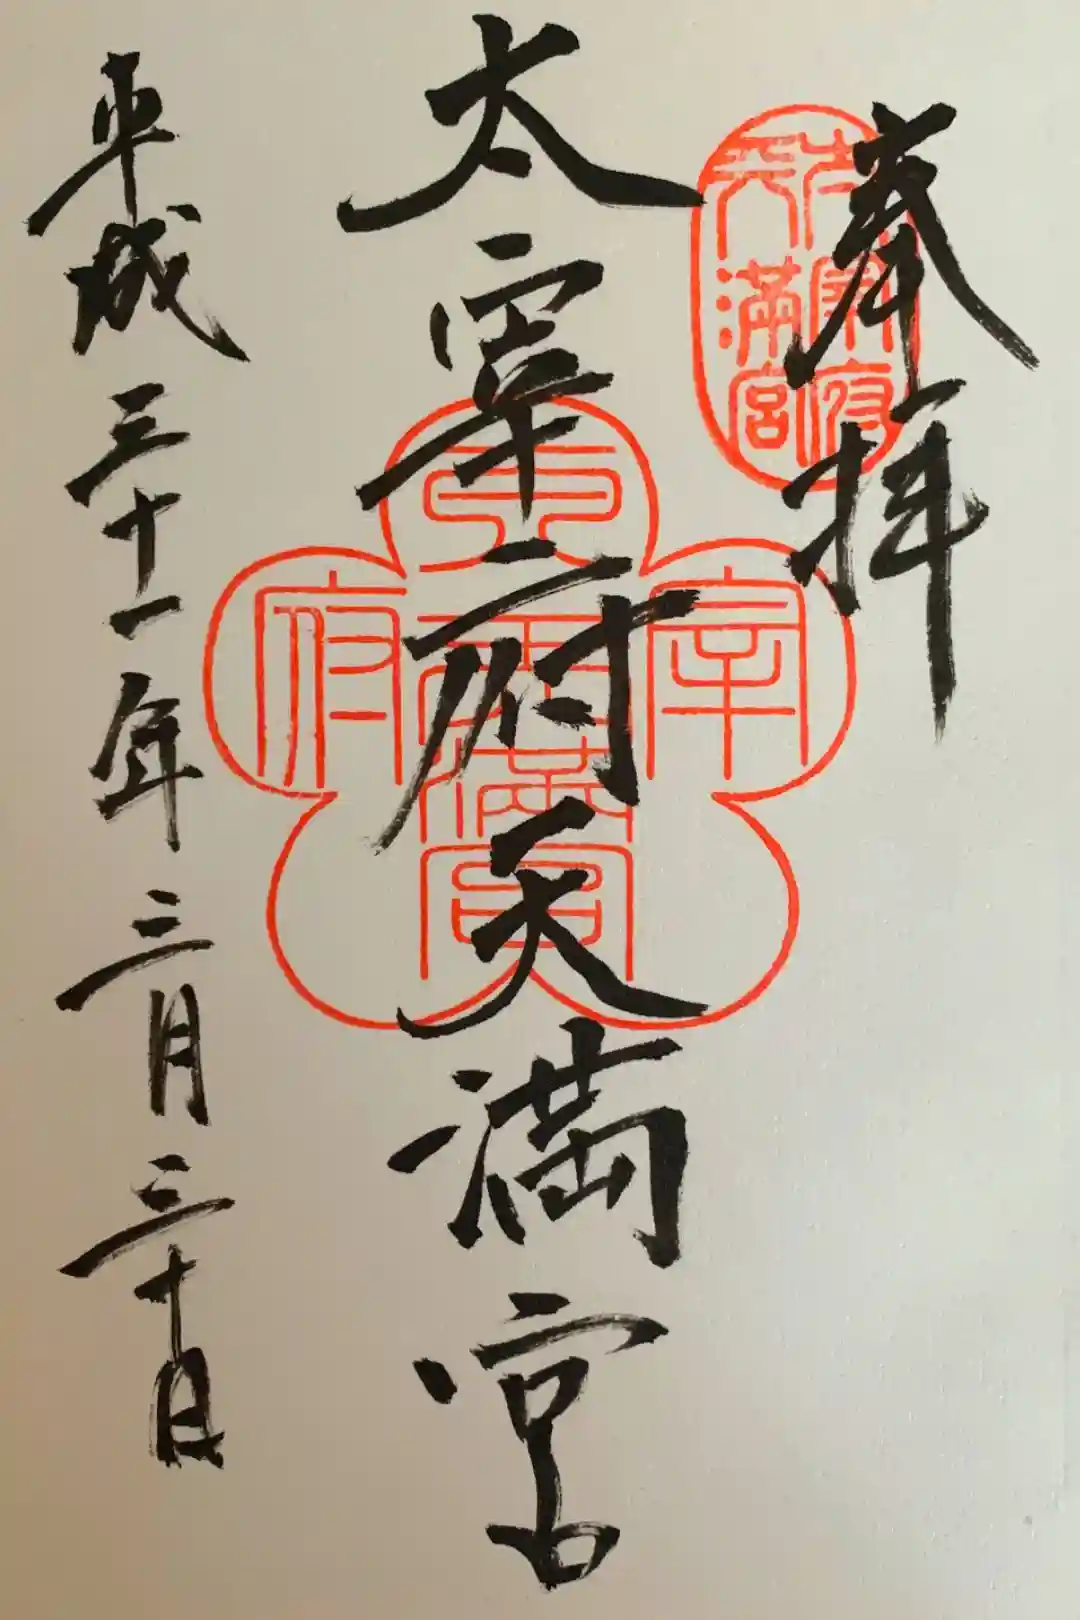 奉拝
太宰府天満宮
平成三十一年三月三十日
太宰府
天満宮
太宰府天満宮